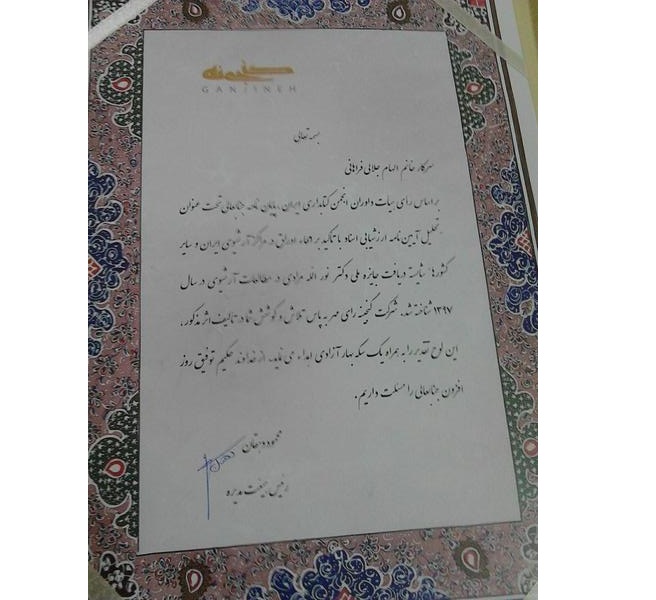 گنجینه
GANJINEH
بسمه تعالی
سرکار خانم الهام جلالی فراهانی
بر اساس رای هیات داوران انجمن کتابداری ایران، پایان نامه جنابعالی تحت عنوان
تحلیل آیین نامه ارزشیابی اسناد با تاکید بر امحاء اوراق در مراکز آرشیوی ایران و سایر
کشورها شایسته دریافت جایزه ملی دکتر نور الله مرادی در مطالعات آرشیوی در سال
۱۳۹۷ شناخته شد. شرکت گنجینه رای مهر به پاس تلاش و کوشش شما در تالیف اثر مذکور،
این لوح تقدیر را به همراه یک سکه بهار آزادی اهداء می نماید. از خداوند حکیم توفیق روز
افزون جنابعالی را مسئلت داریم.
محمود دهقان
رئیس هیئت مدیره